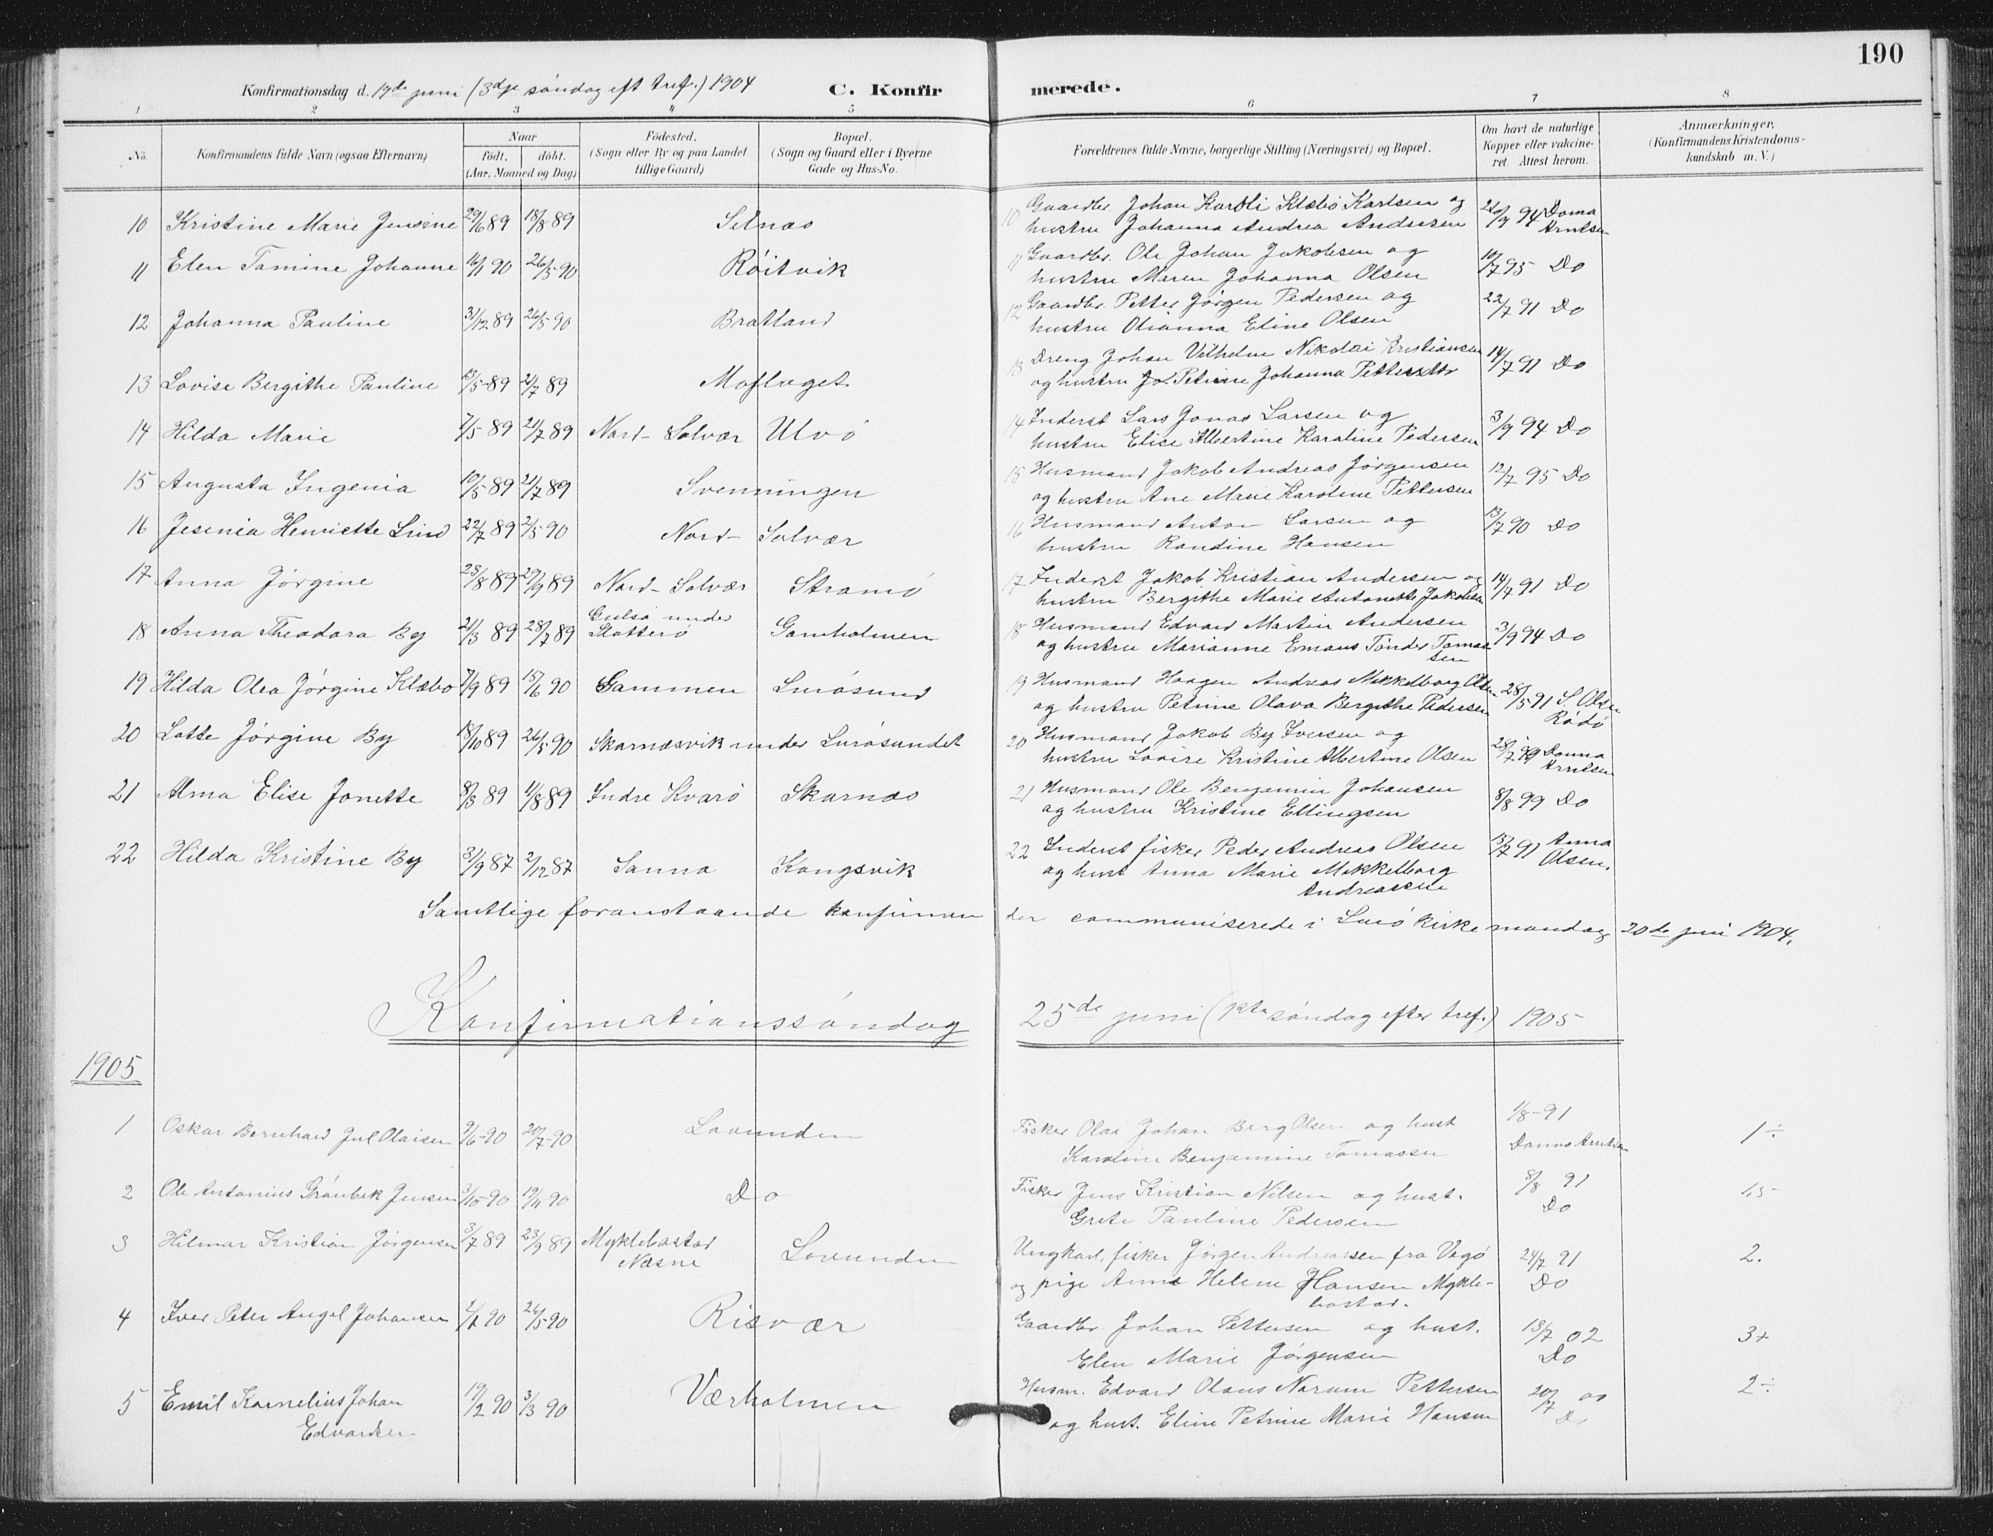 190
Konfirmationsdag d. 19de juni (3dje søndag eft tref.) 1904 C. Konfirmerede.
1 2 3 4 5 6 7 8
No. Konfirmandens fulde Navn (ogsaa Efternavn) Naar født. døbt. (Aar, Maaned og Dag) Fødested. (Sogn eller By og paa Landet tillige Gaard) Bopæl. (Sogn og Gaard eller i Byerne Gade og Hus-No. Forældrenes fulde Navne, borgerlige Stilling (Næringsvei) og Bopæl. Om havt de naturlige Kopper eller vakcineret. Attest herom. Anmærkninger. (Konfirmandens Kristendomskundskab m. V.)
10 Kristine Marie Jensine 29/6 89 18/8 89 Selnæs 10 Gaardbr. Johan Karoli Klæbo Karlsen og
hustru Johanna Andrea Andersen 20/9 94 Dorna Arntsen
11 Elen Tamine Johanne 16/1 90 26/5 90 Røitvik 11 Gaardbr. Ole Johan Jakobsen og
hustru Maren Johanna Olsen 10/7 95 Do
12 Johanna Pauline 31/12 89 26/5 90 Bratland 12 Gaardbr Petter Jørgen Pedersen og
hustru Olianna Eline Olsen 22/7 91 Do
13 Lovise Bergithe Pauline 13/5 89 21/7 89 Moflaget 13 Dreng Johan Vilhelm Nikolai Kristiansen
og hustru Petrine Johanna Pettersdtr 14/7 91 Do
14 Hilda Marie 7/5 89 21/7 89 Nord-Solvær Ulvø 14 Inderst Lars Jonas Larsen og
hustru Elise Albertine Karoline Pedersen 3/9 94 Do
15 Augusta Ingenia 10/5 89 21/7 89 Svenningen 15 Husmand Jakob Andreas Jørgensen
og hustru Ane Marie Karoline Pettersen 12/7 95 Do
16 Jesenia Henriette Lind 22/7 89 2/5 90 Nord-Solvær 16 Husmand Anton Larsen og
hustru Randine Hansen 13/7 90 Do
17 Anna Jørgine 23/8 89 29/9 89 Nord-Solvær Stramø 17 Inderst Jakob Kristian Andersen og
hustru Bergithe Marie Antonette Jakobsen 14/7 91 Do
18 Anna Theodora By 21/3 89 28/7 89 Gulsø under Slotterø Gamholmen 18 Husmand Edvard Martin Andersen
og hustru Marianne Emaus Tønder Tomassen 3/9 94 Do
19 Hilda Olea Jørgine Klæbo 7/9 89 15/6 90 Gammen Lurøsund 19 Husmand Haagen Andreas Mekkelborg Olsen
og hustru Petrine Olava Bergithe Pedersen 28/5 91 S. Olsen Rødø
20 Lotte Jørgine By 18/10 89 26/5 90 Skarnæsvik under Lurøsundet 20 Husmand Jakob By Iversen og
hustru Lovise Kristine Albertine Olsen 28/7 99 Donna Arntsen
21 Alma Elise Jonette 8/3 89 11/8 89 Indre Kvarø Skarnæs 21 Husmand Ole Benjamin Johansen
og hustru Kristine Ellingsen 8/8 99 Do
22 Hilda Kristine By 31/9 87 2/12 87 Sanna Kongsvik 22 Inderst fisker Peder Andreas Olsen
og hust Anna Marie Mekkelborg Andreassen 13/7 91 Anna Olsen.
Samtlige foranstaaende konfirmander communiserede i Lurø kirke mandag 20de juni 1904.
Konfirmationssøndag 25de juni (1ste søndag efter tref.) 1905
1905
1 Oskar Bernhard Jul Olaisen 9/6-90 20/7-90 Lovunden Fisker Olai Johan Berg Olsen og hust
Karoline Benjamine Tomassen 1/8-91 Donna Arntsen 1÷
2 Ole Antonius Grønbek Jensen 3/10-90 19/11 90 Do Fisker Jens Kristian Nilsen og hust.
Grete Pauline Pedersen 8/8 91 Do 1,5
3 Hilmar Kristian Jørgensen 3/7 89 23/9 89 Myklebostad Næsne Lovunden Ungkarl, fisker Jørgen Andreassen fra Vegø
og pige Anna Helene Hansen Myklebostad. 24/7 91 Do 2.
4 Iver Peter Angel Johansen 2/1 90 26/5 90 Risvær Gaardbr Johan Pettersen og hust.
Elen Marie Jørgensen 18/7 02 Do 3+
5 Emil Kornelius Johan Edvardsen 19/2 90 3/3 90 Værholmen Husm. Edvard Olaus Narum Pettersen
og hust. Eline Petrine Marie Hansen 20/7 00 Do 2÷